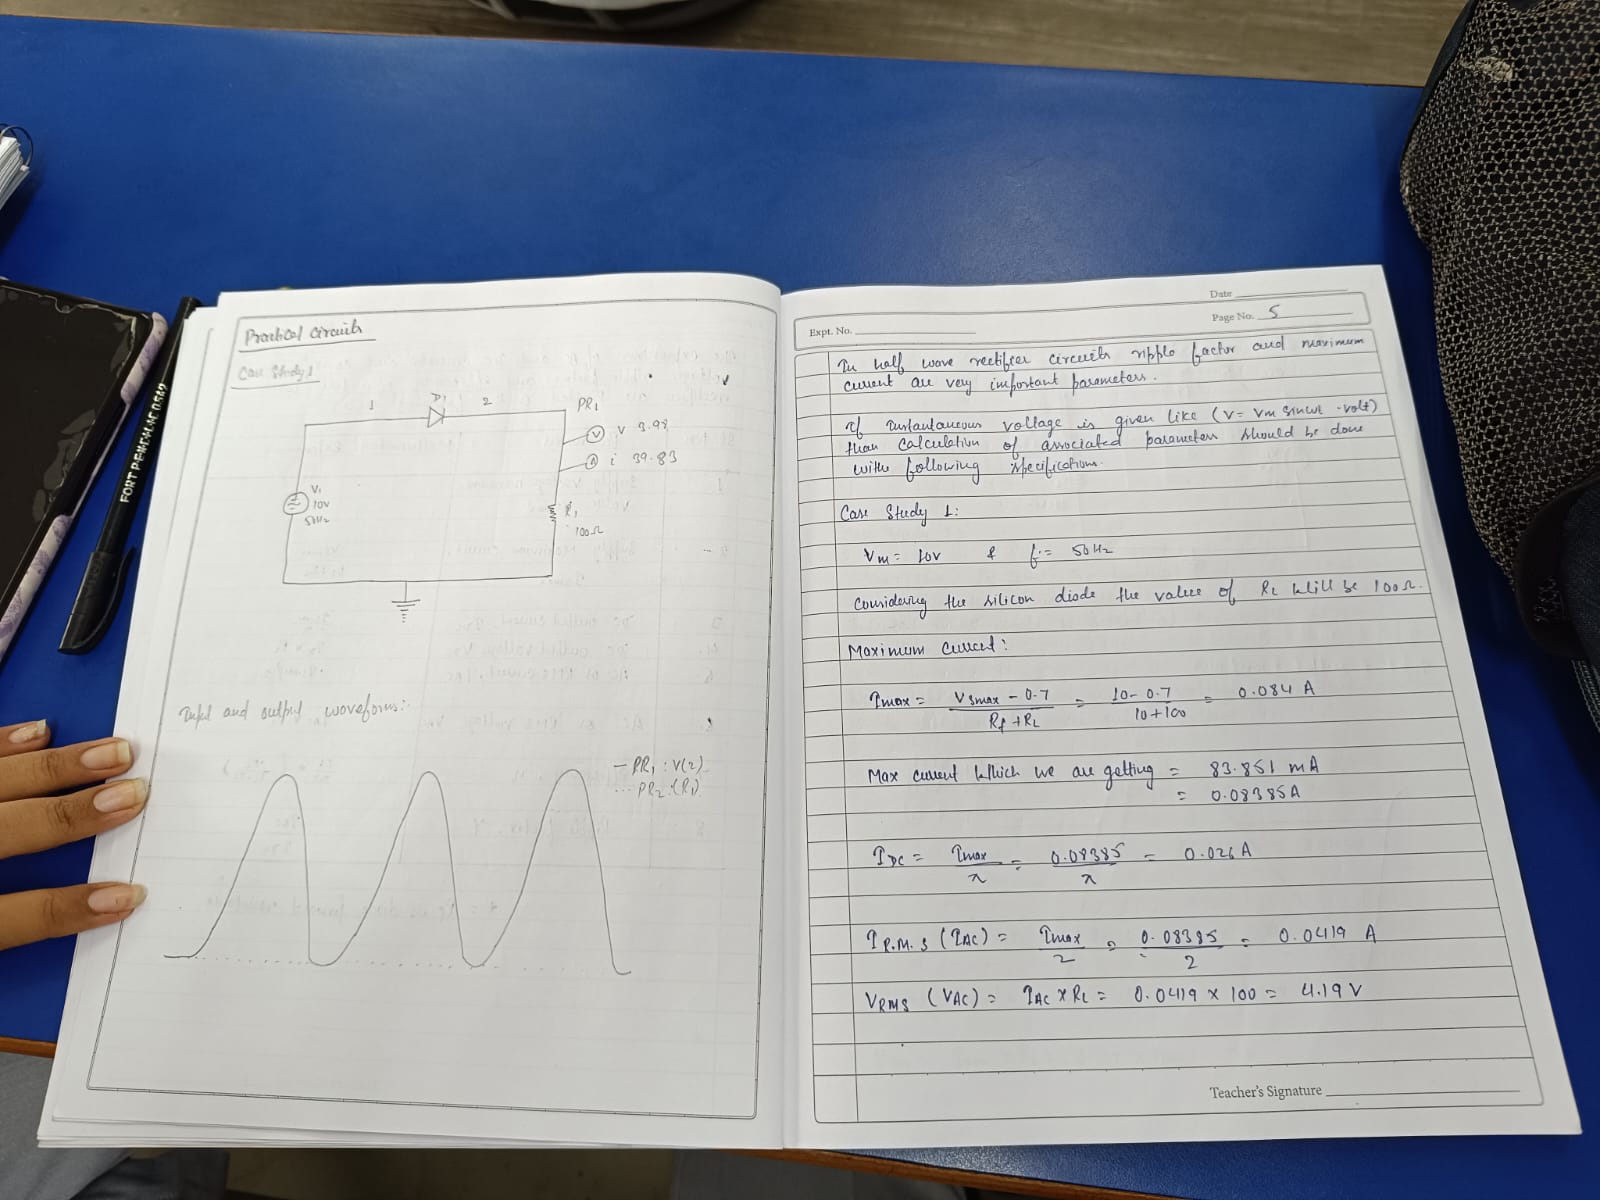 Practical Circuits
Case Study 1
1
D1
2
PR1
V v 3.98
A i 39.83
V1
10V
50Hz
R1
100Ω
Input and output waveforms:-
— PR1 : V(2)
... PR2 : (R1)
FORT PEHACHI AC 0582
Date
Expt. No.
Page No. 5
In half wave rectifier circuits ripple factor and maximum
current are very important parameters.
If Instantaneous voltage is given like (V = Vm sinωt -volt)
than calculation of associated parameters should be done
with following specifications.
Case Study 1:
Vm = 10V & f = 50Hz
Considering the silicon diode the value of RL will be 100Ω.
Maximum Current:
Imax = Vsmax - 0.7 / Rf + RL = 10 - 0.7 / 10 + 100 = 0.084 A
Max current which we are getting = 83.851 mA
= 0.08385A
IDC = Imax / π = 0.08385 / π = 0.026 A
IR.M.S (IAC) = Imax / 2 = 0.08385 / 2 = 0.0419 A
VRMS (VAC) = IAC x RL = 0.0419 x 100 = 4.19 V
Teacher's Signature